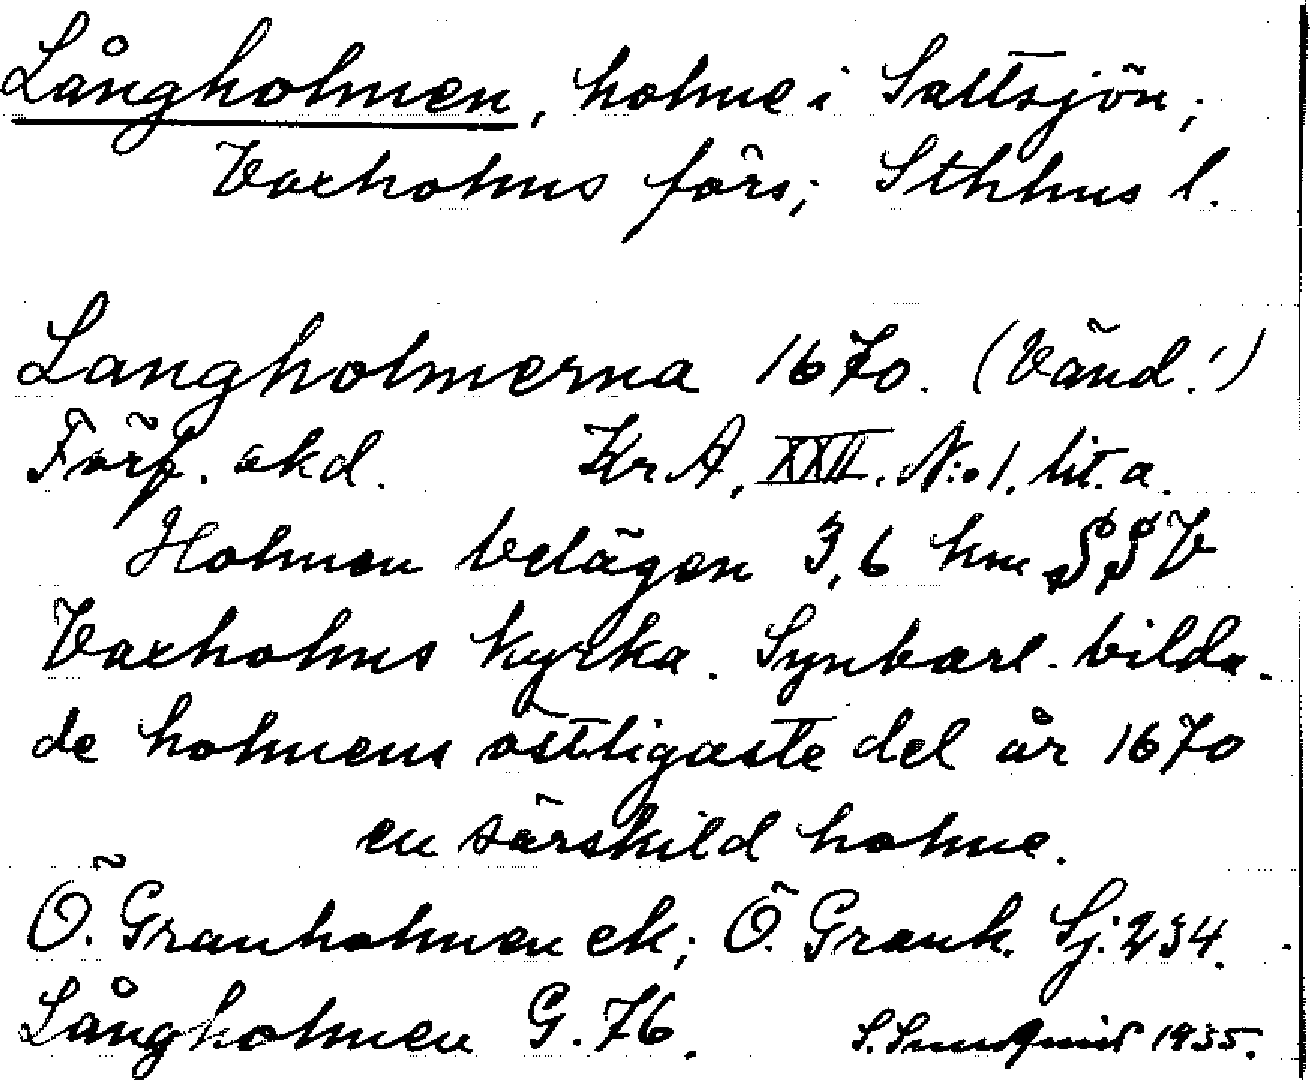 Långholmen, holme i Saltsjön;
Vaxholms förs; Sthlms l.
Langholmerna 1670. (Vänd!)
Förf. okd. KrA, XXII. N:o 1. lit. a.
Holmen belägen 3,6 km SSV
Vaxholms kyrka. Synbarl. bilda-
de holmens östligaste del år 1670
en särskild holme.
Ö. Granholmen ek; Ö. Granh. Sj. 234.
Långholmen G. 76. S. Sundquist 1935.